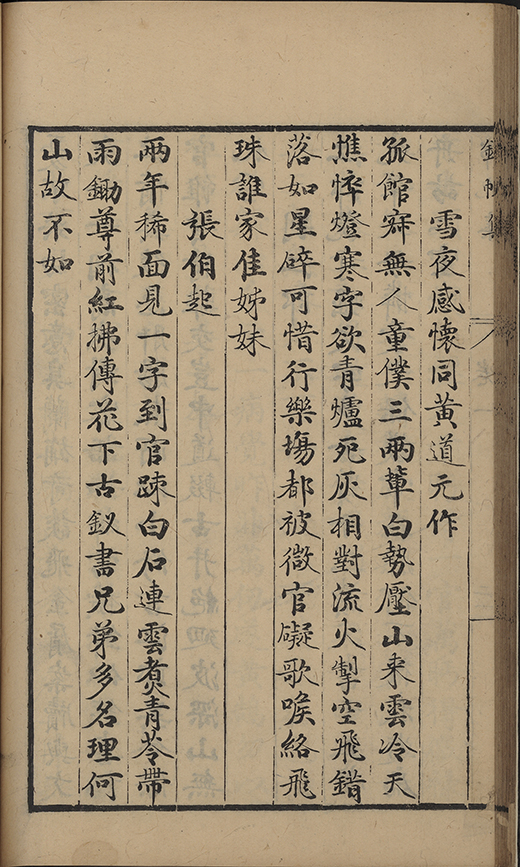 雪夜感懷同黃道元作
孤館寂無人童僕三兩輩白勢壓山來雲冷天
憔悴燈寒字欲青爐死灰相對流火掣空飛錯
落如星碎可惜行樂塲都被微官礙歌喉絡飛
珠誰家佳姊妹
張伯起
兩年稀面見一字到官踈白石連雲煑青苓帶
雨鋤尊前紅拂傳花下古釵書兄弟多名理何
山故不如